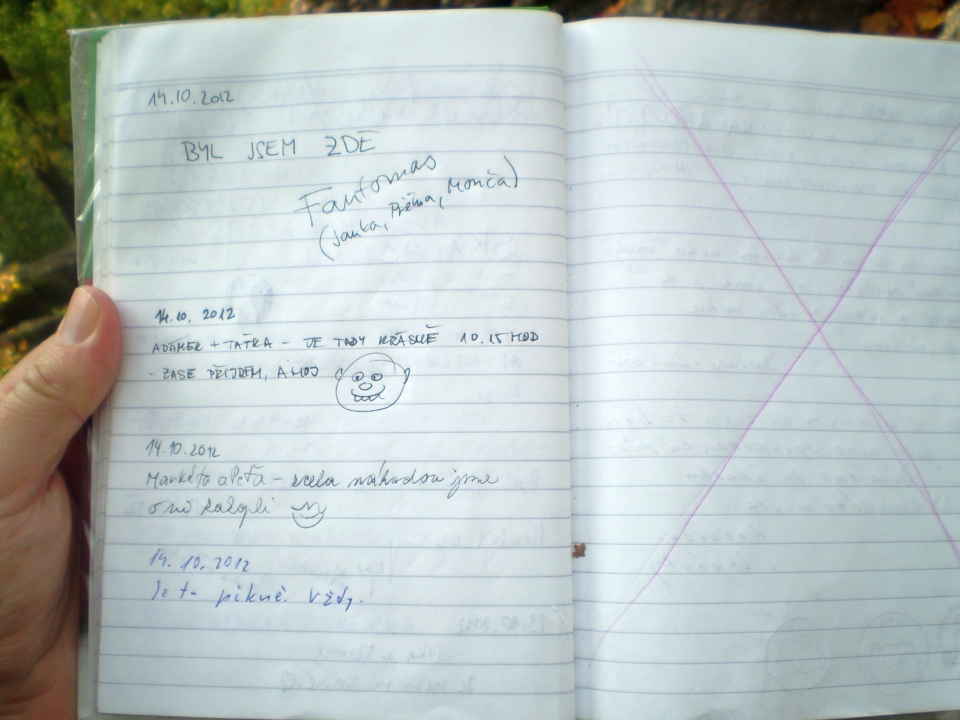 14.10.2012
BYL JSEM ZDE
Fantomas
(Janka, Přéma, Monča)
14.10.2012
ADÁMEK + TAŤKA - JE TADY KRÁSNĚ 10.15 HOD
- ZASE PŘIJDEM, AHOJ
14.10.2012
Markéta a Peťa - zcela náhodou jsme
14.10.2012
Je tu pěkně. Vždy.